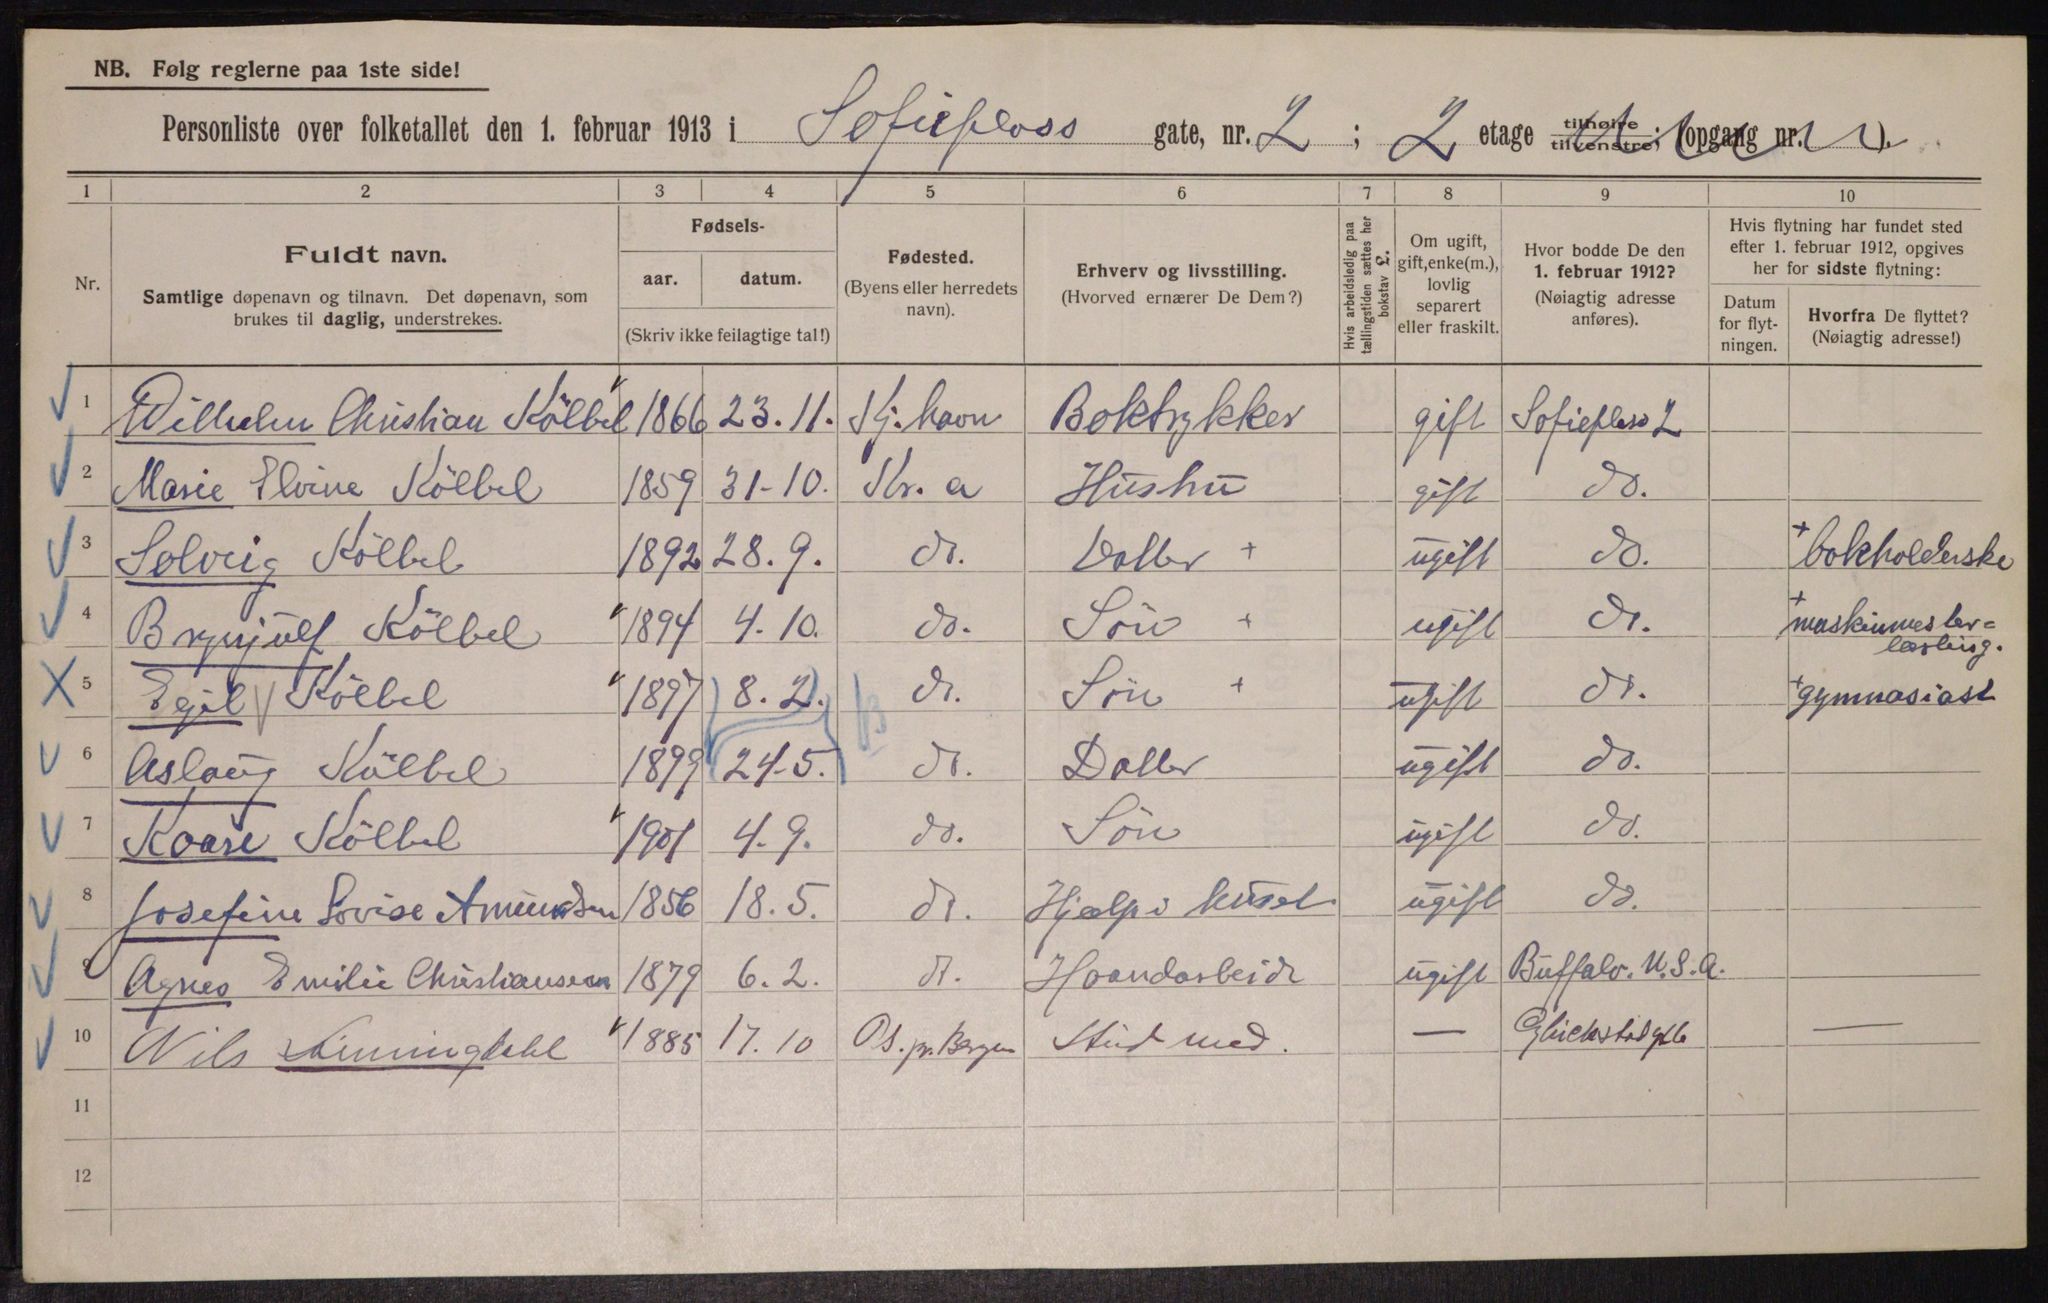 NB. Følg reglerne paa 1ste side!
Personliste over folketallet den 1. februar 1913 i Sofieplass gate, nr. 2 ; 2 etage tilhøire tilvenstre; (opgang nr. ).
1 2 3 4 5 6 7 8 9 10
Nr.
Fuldt navn.
Samtlige døpenavn og tilnavn. Det døpenavn, som
brukes til daglig, understrekes.
Fødsels-
aar. datum.
(Skriv ikke feilagtige tal!)
Fødested.
(Byens eller herredets
navn).
Erhverv og livsstilling.
(Hvorved ernærer De Dem?)
Hvis arbeidsledig paa
tællingstiden sættes her
bokstav L.
Om ugift,
gift, enke(m.),
lovlig
separert
eller fraskilt.
Hvor bodde De den
1. februar 1912?
(Nøiagtig adresse
anføres).
Hvis flytning har fundet sted
efter 1. februar 1912, opgives
her for sidste flytning:
Datum
for flyt-
ningen.
Hvorfra De flyttet?
(Nøiagtig adresse!)
1 Wilhelm Christian Kölbel 1866 23.11. Kj.havn Boktrykker gift Sofieplass 2
2 Marie Elvine Kölbel 1859 31-10. Kr. a Hustru gift do.
3 Solveig Kölbel 1892 28.9. do. Datter + ugift do. + bokholderske
4 Brynjulf Kölbel 1894 4.10. do. Sön + ugift do. + maskinmester=
lærling.
5 Egil Kölbel 1897 8.2. do. Sön + ugift do. + gymnasiast
6 Aslaug Kölbel 1899 24-5. do. Datter ugift do.
7 Kaare Kölbel 1901 4.9. do. Sön ugift do.
8 Josefine Lovise Amundsen 1856 18.5. do. Hjælp i huset ugift do.
9 Agnes Emilie Christiansen 1879 6.2. do. Haandarbeide ugift Buffalo. U.S.A.
10 Nils 1885 17.10 Os. pr. Bergen Stud med. — —
11
12